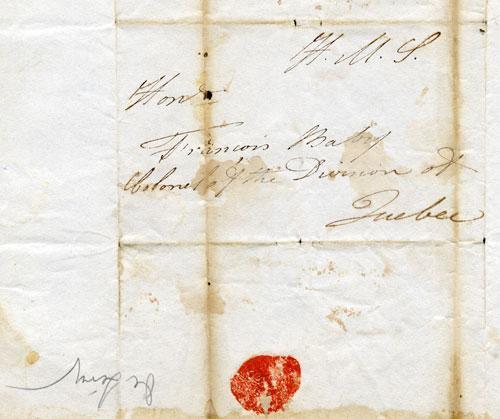 H. M. S.
Honble
François Baby
Colonel of the Division of
Quebec